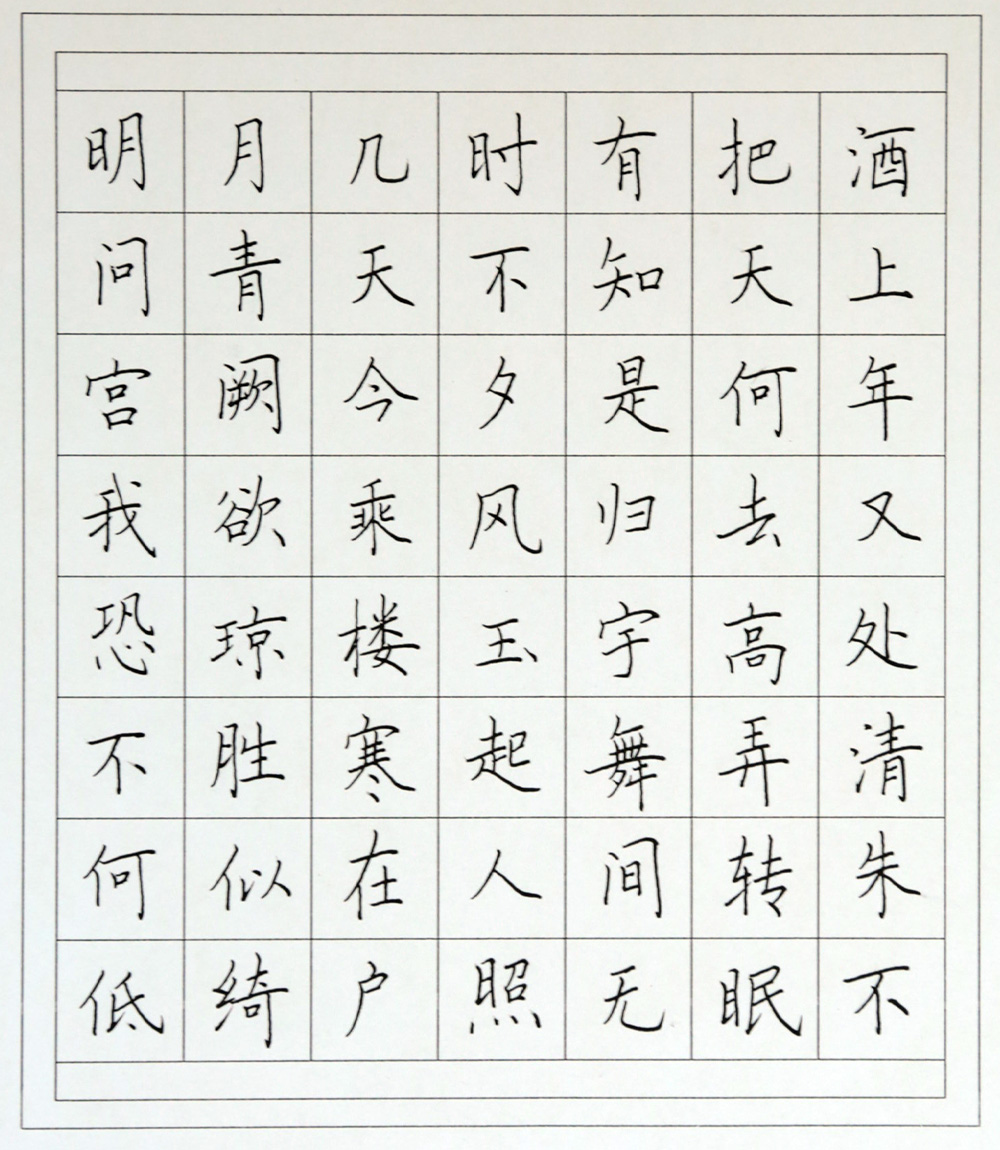 明月几时有把酒
问青天不知天上
宫阙今夕是何年
我欲乘风归去又
恐琼楼玉宇高处
不胜寒起舞弄清
何似在人间转朱
低绮户照无眠不